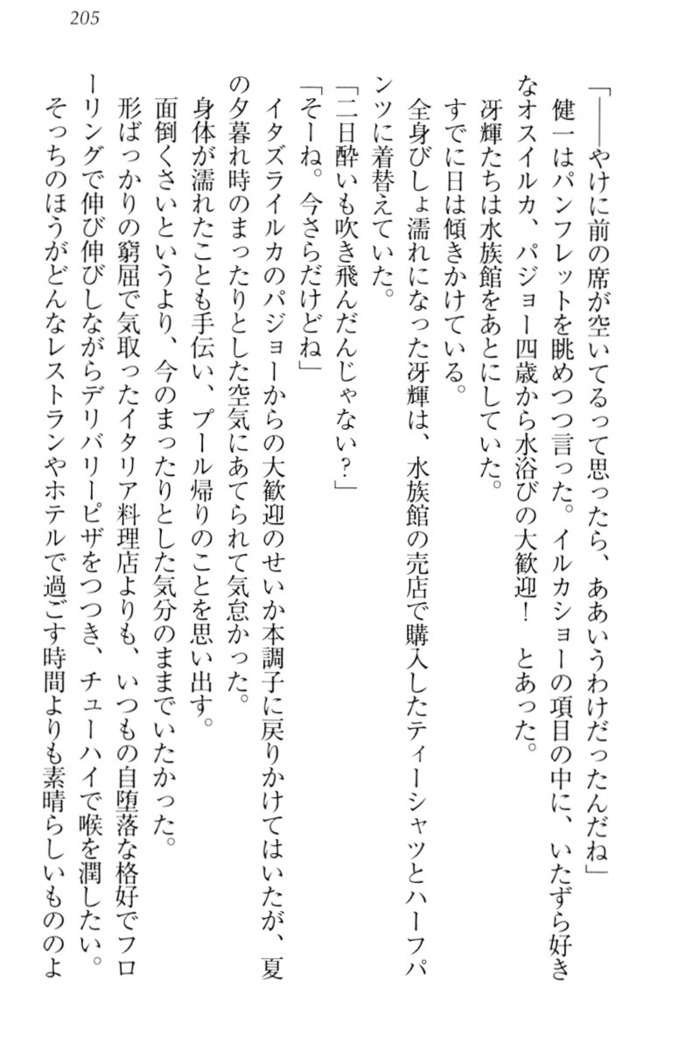 205
「――やけに前の席が空いてるって思ったら、ああいうわけだったんだね」
健一はパンフレットを眺めつつ言った。イルカショーの項目の中に、いたずら好き
なオスイルカ、パジョー四歳から水浴びの大歓迎！　とあった。
冴輝たちは水族館をあとにしていた。
すでに日は傾きかけている。
全身びしょ濡れになった冴輝は、水族館の売店で購入したティーシャツとハーフパ
ンツに着替えていた。
「二日酔いも吹き飛んだんじゃない？」
「そーね。今さらだけどね」
イタズライルカのパジョーからの大歓迎のせいか本調子に戻りかけてはいたが、夏
の夕暮れ時のまったりとした空気にあてられて気怠かった。
身体が濡れたことも手伝い、プール帰りのことを思い出す。
面倒くさいというより、今のまったりとした気分のままでいたかった。
形ばっかりの窮屈で気取ったイタリア料理店よりも、いつもの自堕落な格好でフロ
ーリングで伸び伸びしながらデリバリーピザをつつき、チューハイで喉を潤したい。
そっちのほうがどんなレストランやホテルで過ごす時間よりも素晴らしいもののよ